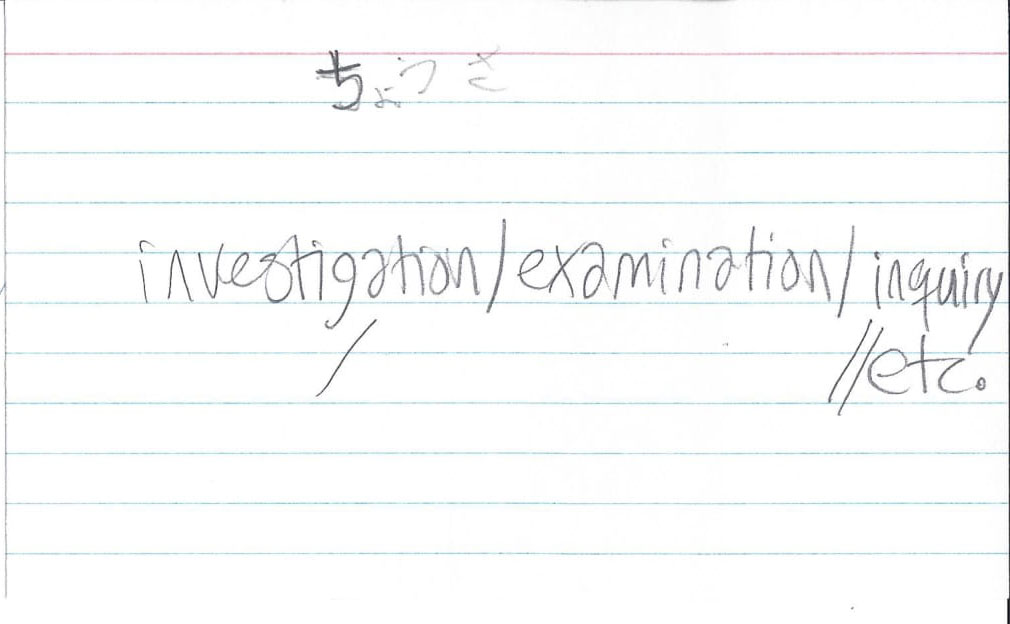 ちょうさ
investigation/examination/inquiry
/ //etc.